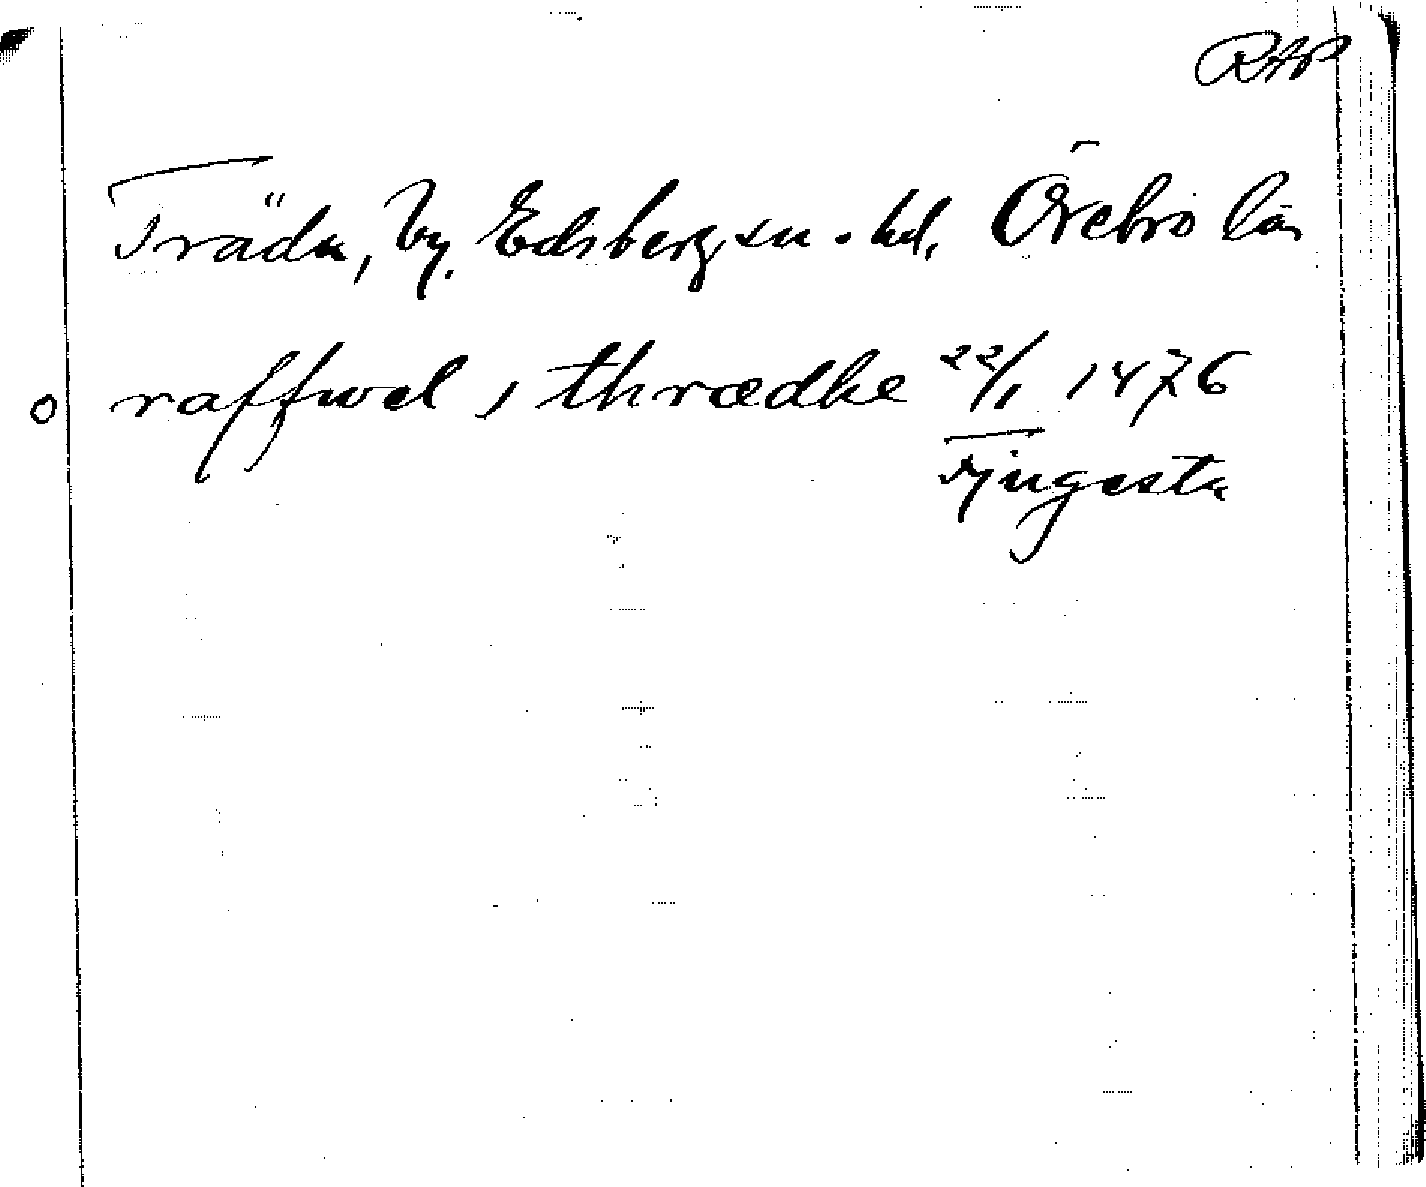 RAP
Träda, by, Edsberg sn. hd, Örebro län
o raffwal, i thrædhe 22/1 1476
Fjugesta